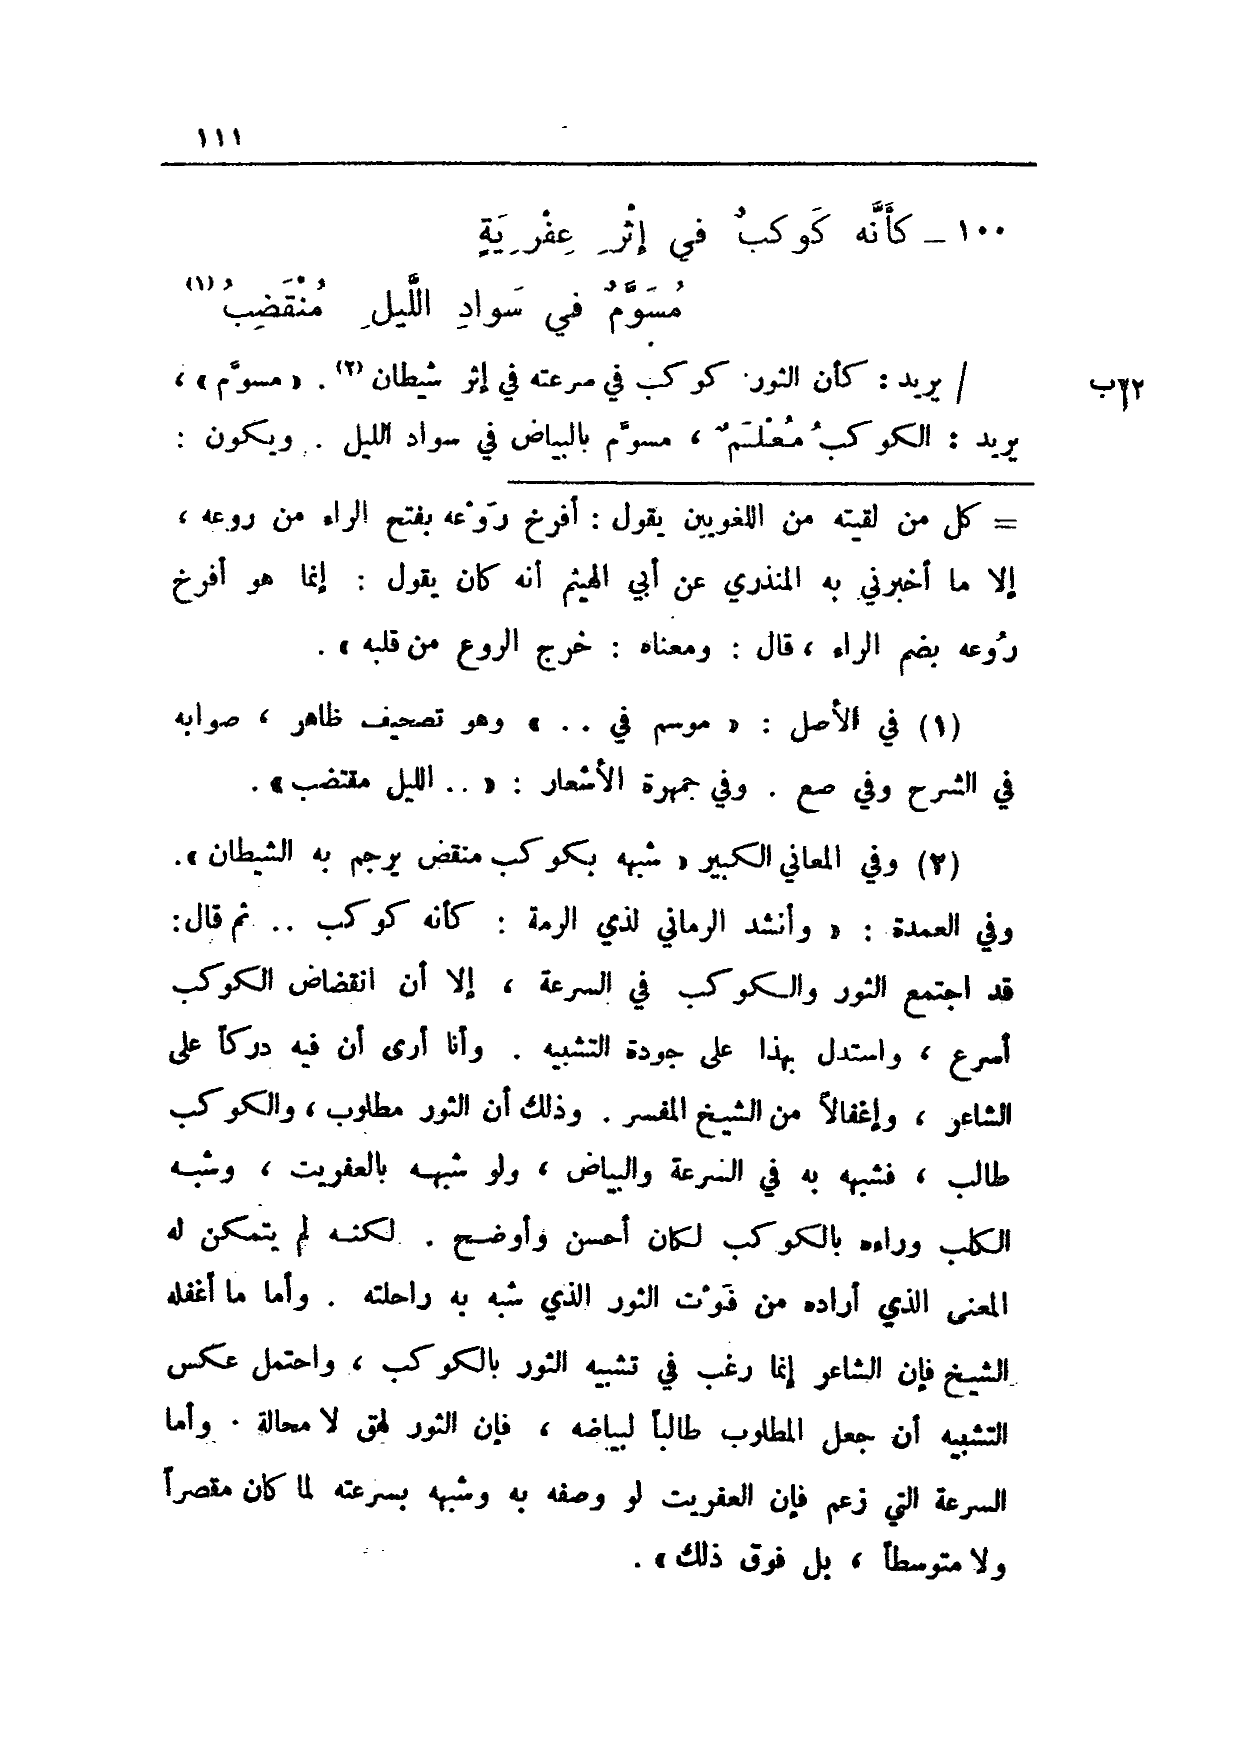 ١١١
١٠٠ ـ كأَنَّه كَوكبٌ في إثْرِ عِفْرِيَةٍ
مُسَوَّمٌ في سَوادِ اللَّيلِ مُنْقَضِبُ (١)
/ يريد : كأن الثور كوكب في سرعته في إثر شيطان (٢) . « مسوَّم » ،
٢٢ب
يريد : الكوكبُ مُعْلَمٌ ، مسوَّم بالبياض في سواد الليل . ويكون :
= كل من لقيته من اللغويين يقول : أفرخ رَوْعه بفتح الراء من روعه ،
إلا ما أخبرني به المنذري عن أبي الهيثم أنه كان يقول : إنما هو أفرخ
رُوعه بضم الراء ، قال : ومعناه : خرج الروع من قلبه » .
(١) في الأصل : « موسم في .. » وهو تصحيف ظاهر ، صوابه
في الشرح وفي صع . وفي جمهرة الأشعار : « .. الليل مقتضب » .
(٢) وفي المعاني الكبير « شبهه بكوكب منقض يرجم به الشيطان » .
وفي العمدة : « وأنشد الرماني لذي الرمة : كأنه كوكب .. ثم قال :
قد اجتمع الثور والكوكب في السرعة ، إلا أن انقضاض الكوكب
أسرع ، واستدل بهذا على جودة التشبيه . وأنا أرى أن فيه دركاً على
الشاعر ، وإغفالاً من الشيخ المفسر . وذلك أن الثور مطلوب ، والكوكب
طالب ، فشبهه به في السرعة والبياض ، ولو شبهه بالعفريت ، وشبه
الكلب وراءه بالكوكب لكان أحسن وأوضح . لكنه لم يتمكن له
المعنى الذي أراده من فَوْت الثور الذي شبه به راحلته . وأما ما أغفله
الشيخ فإن الشاعر إنما رغب في تشبيه الثور بالكوكب ، واحتمل عكس
التشبيه أن جعل المطلوب طالباً لبياضه ، فإن الثور لهق لا محالة . وأما
السرعة التي زعم فإن العفريت لو وصفه به وشبهه بسرعته لما كان مقصراً
ولا متوسطاً ، بل فوق ذلك » .